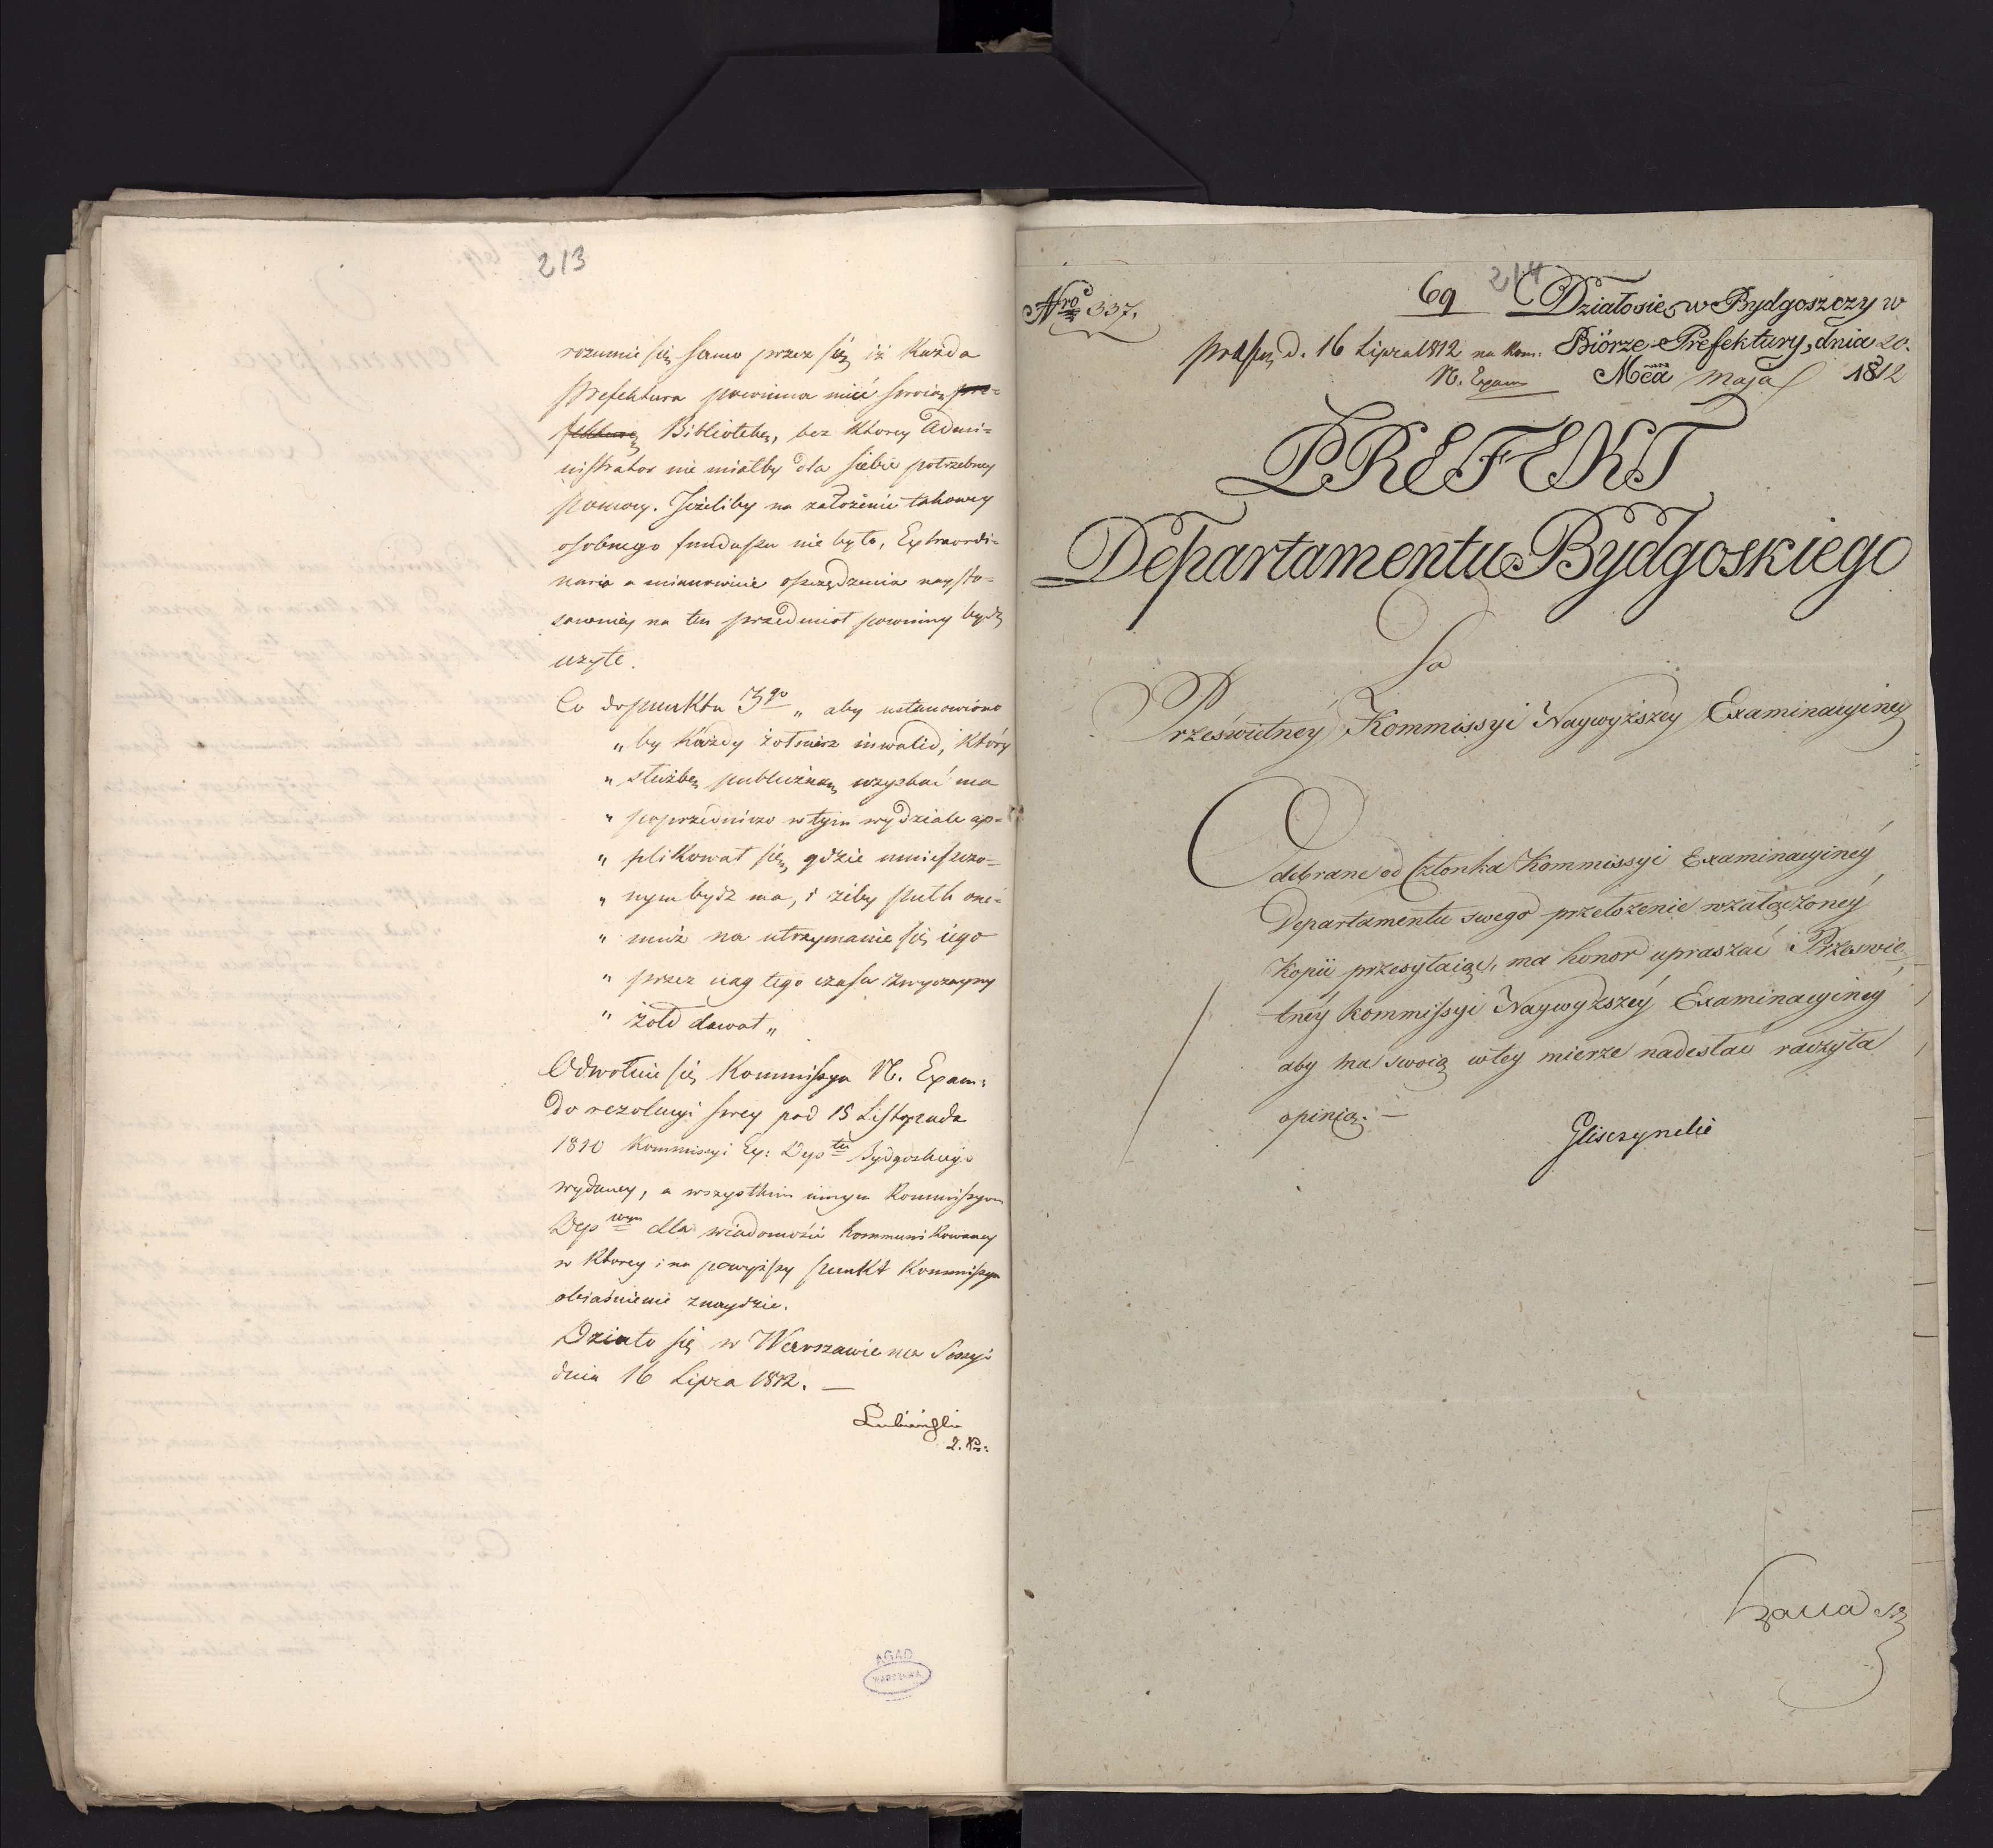 213
rozumie się samo przez się iż Każda
Prefektura powinna mieć swoią pre-
fekturę Bibliotekę, bez ktorey Admi-
nistrator nie miałby dla siebie potrzebney
pomocy. Jeżeliby na założenie takowey
osobnego funduszu nie było, Extraordi-
naria a mianowicie oszczędzenia naysto-
sowniey na ten przedmiot powinny bydź
użyte.
Co do punktu 3go „ aby ustanowiono
„ by Każdy żołnierz inwalid, Który
„ służbę publiczną uzyskać ma
„ poprzedniczo w tym wydziale ap-
„ plikował się, gdzie umieszczo-
„ nym bydź ma, i żeby pułk one-
„ muż na utrzymanie się iego
„ przez ciąg tego czasu zwyczayny
„ żołd dawał „
Odwołuie się Kommissya N. Exam:
do rezolucyi swey pod 15 Listopada
1810 Kommissyi Ex: Deptu Bydgoskiego
wydaney, a wszystkim innym Kommissyom
Depwym dla wiadomości kommunikowaney
w Ktorey i na powyższy punkt Kommissya
obiaśnienie znaydzie.
Działo się w Warszawie na Sessyi
dnia 16 Lipca 1812. —
Lubieński
AGAD
WARSZAWA
214
Nro 337.
69
Działosię w Bydgoszczy w
Biórze Prefektury, dnia 20.
Mca maja 1812
præs. d. 16 Lipca 1812 na Kom.
N. Exam
PREFEKT
Departamentu Bydgoskiego
Do
Prześwietnéy Kommissyi Naywyższey Examinacyiney
Odebrane od Członka Kommissyi Examinacyinéy
Departamentu swego przełożenie w załączonéy
Kopii przesyłaiąc, ma honor upraszać Prześwie-
tnéy Kommissyi Naywyższéy Examinacyinéy
aby mu swoią w tey mierze nadesłać raczyła
opinią. —
Gliszczyński